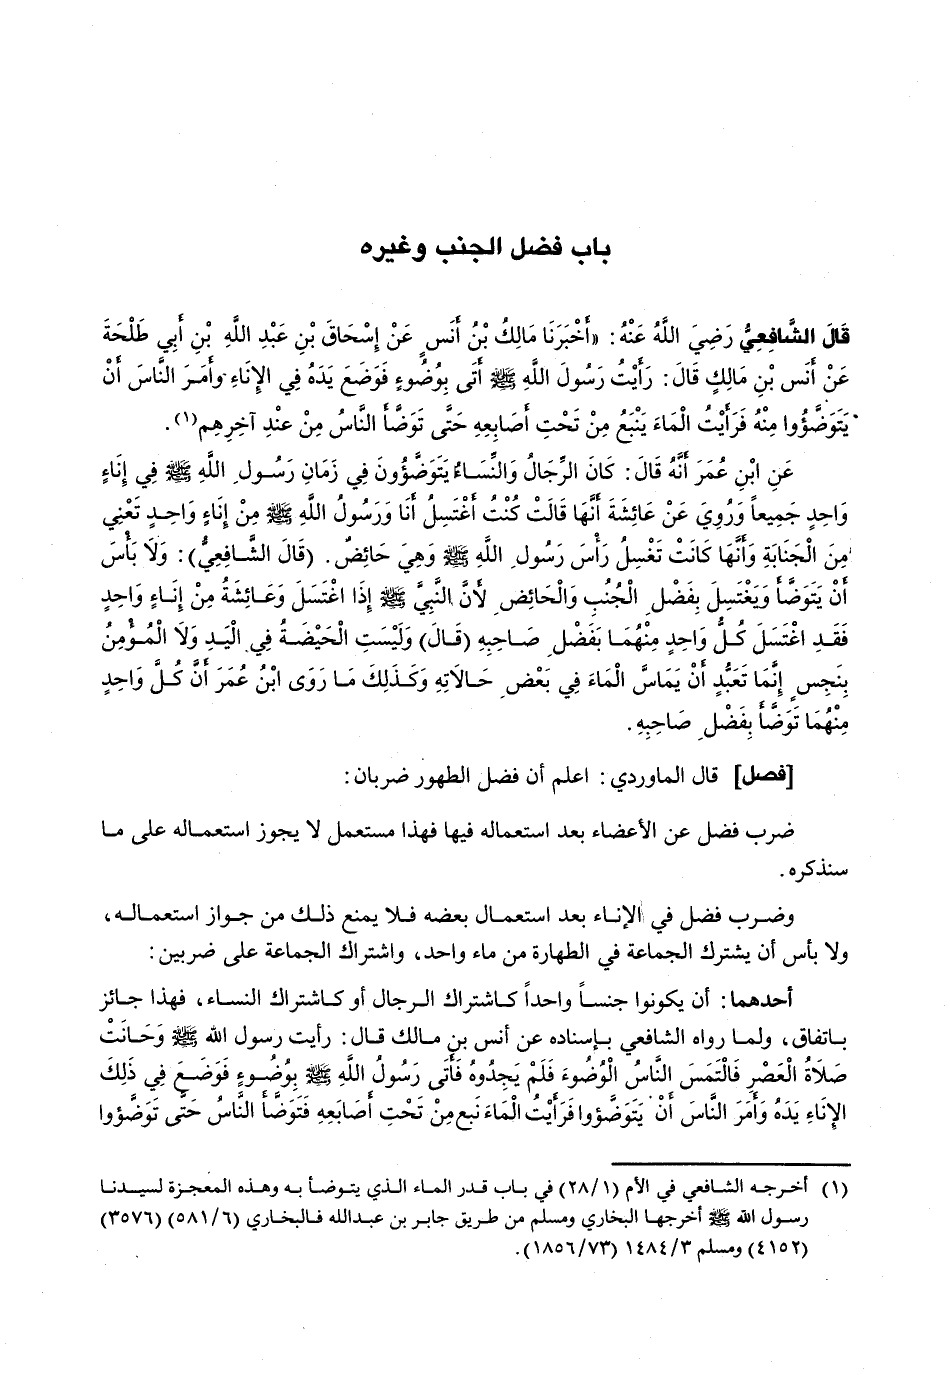 باب فضل الجنب وغيره
قَالَ الشَّافِعِيُّ رَضِيَ اللَّهُ عَنْهُ: «أَخْبَرَنَا مَالِكُ بْنُ أَنَسٍ عَنْ إِسْحَاقَ بْنِ عَبْدِ اللَّهِ بْنِ أَبِي طَلْحَةَ
عَنْ أَنَسِ بْنِ مَالِكٍ قَالَ: رَأَيْتُ رَسُولَ اللَّهِ ﷺ أَتَى بِوُضُوءٍ فَوَضَعَ يَدَهُ فِي الإِنَاءِ وأَمَرَ النَّاسَ أَنْ
يَتَوَضَّؤُوا مِنْهُ فَرَأَيْتُ الْمَاءَ يَنْبَعُ مِنْ تَحْتِ أَصَابِعِهِ حَتَّى تَوَضَّأَ النَّاسُ مِنْ عِنْدِ آخِرِهِم(١).
عَنِ ابْنِ عُمَرَ أَنَّهُ قَالَ: كَانَ الرِّجَالُ وَالنِّسَاءُ يَتَوَضَّؤُونَ فِي زَمَانِ رَسُولِ اللَّهِ ﷺ فِي إِنَاءٍ
وَاحِدٍ جَمِيعاً وَرُوِيَ عَنْ عَائِشَةَ أَنَّهَا قَالَتْ كُنْتُ أَغْتَسِلُ أَنَا وَرَسُولُ اللَّهِ ﷺ مِنْ إِنَاءٍ وَاحِدٍ تَعْنِي
مِنَ الْجَنَابَةِ وَأَنَّهَا كَانَتْ تَغْسِلُ رَأْسَ رَسُولِ اللَّهِ ﷺ وَهِيَ حَائِضٌ. (قَالَ الشَّافِعِيُّ): وَلَا بَأْسَ
أَنْ يَتَوَضَّأَ وَيَغْتَسِلَ بِفَضْلِ الْجُنُبِ وَالْحَائِضِ لأَنَّ النَّبِيَّ ﷺ إِذَا اغْتَسَلَ وَعَائِشَةُ مِنْ إِنَاءٍ وَاحِدٍ
فَقَدِ اغْتَسَلَ كُلُّ وَاحِدٍ مِنْهُمَا بَفَضْلِ صَاحِبِهِ (قَالَ) وَلَيْسَتِ الْحَيْضَةُ فِي الْيَدِ وَلَا الْمُؤْمِنُ
بِنَجِسٍ إِنَّمَا تَعَبُّدٍ أَنْ يَمَاسَّ الْمَاءَ فِي بَعْضِ حَالَاتِهِ وَكَذَلِكَ مَا رَوَى ابْنُ عُمَرَ أَنَّ كُلَّ وَاحِدٍ
مِنْهُمَا تَوَضَّأَ بِفَضْلِ صَاحِبِهِ.
[فصل] قال الماوردي: اعلم أن فضل الطهور ضربان:
ضرب فضل عن الأعضاء بعد استعماله فيها فهذا مستعمل لا يجوز استعماله على ما
سنذكره.
وضرب فضل في الإناء بعد استعمال بعضه فلا يمنع ذلك من جواز استعماله،
ولا بأس أن يشترك الجماعة في الطهارة من ماء واحد، واشتراك الجماعة على ضربين:
أحدهما: أن يكونوا جنساً واحداً كاشتراك الرجال أو كاشتراك النساء، فهذا جائز
باتفاق، ولما رواه الشافعي بإسناده عن أنس بن مالك قال: رأيت رسول الله ﷺ وَحَانَتْ
صَلَاةُ الْعَصْرِ فَالْتَمَسَ النَّاسُ الْوُضُوءَ فَلَمْ يَجِدُوهُ فَأَتَى رَسُولُ اللَّهِ ﷺ بِوُضُوءٍ فَوَضَعَ فِي ذَلِكَ
الإِنَاءِ يَدَهُ وَأَمَرَ النَّاسَ أَنْ يَتَوَضَّؤوا فَرَأَيْتُ الْمَاءَ نَبَع مِنْ تَحْتِ أَصَابَعِهِ فَتَوَضَّأَ النَّاسُ حَتَّى تَوَضَّؤوا
(١) أخرجه الشافعي في الأم (٢٨/١) في باب قدر الماء الذي يتوضأ به وهذه المعجزة لسيدنا
رسول الله ﷺ أخرجها البخاري ومسلم من طريق جابر بن عبدالله فالبخاري (٥٨١/٦) (٣٥٧٦)
(٤١٥٢) ومسلم ١٤٨٤/٣ (١٨٥٦/٧٣).